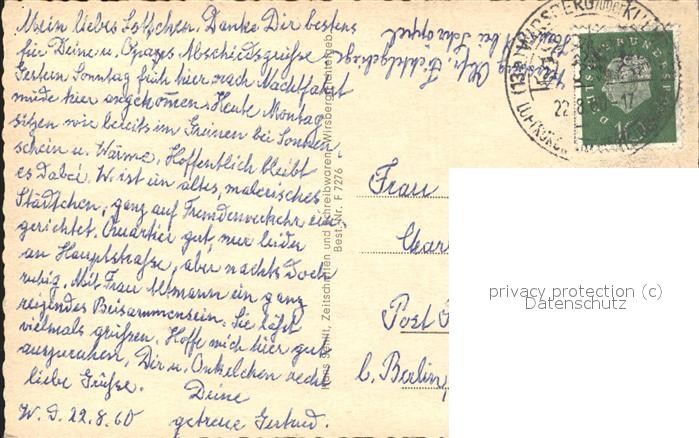 Mein liebes Lottchen. Danke Dir bestens
für Deine u. Opapas Abschiedsgrüße.
Gestern Sonntag früh hier nach Nachtfahrt
müde hier angekommen. Heute Montag
sitzen wir bereits im Grünen bei Sonnen-
schein u. Wärme. Hoffentlich bleibt
es dabei. W. ist ein altes, malerisches
Städtchen, ganz auf Fremdenverkehr ein-
gerichtet. Quartier gut, nur leider
an Hauptstraße, aber nachts doch
ruhig. Mit Frau Altmann ein ganz
reizendes Beisammensein. Sie läßt
vielmals grüßen. Hoffe mich hier gut
auszuruhen, Dir u. Onkelchen recht
liebe Grüße. Deine
W. d. 22.8.60 getreue Gertrud.
Wirsberg Ofr. Fichtelgebirge
bei Schröppel
Hans Senfft, Zeitschriften und Schreibwaren, Wirsberg Fichtelgeb.
Best. Nr. F 7276
WIRSBERG
22.8.
17
LUFTKUR
DEUTSCHE BUNDESPOST
10
Frau
Char
Post
b. Berlin,
privacy protection (c)
Datenschutz